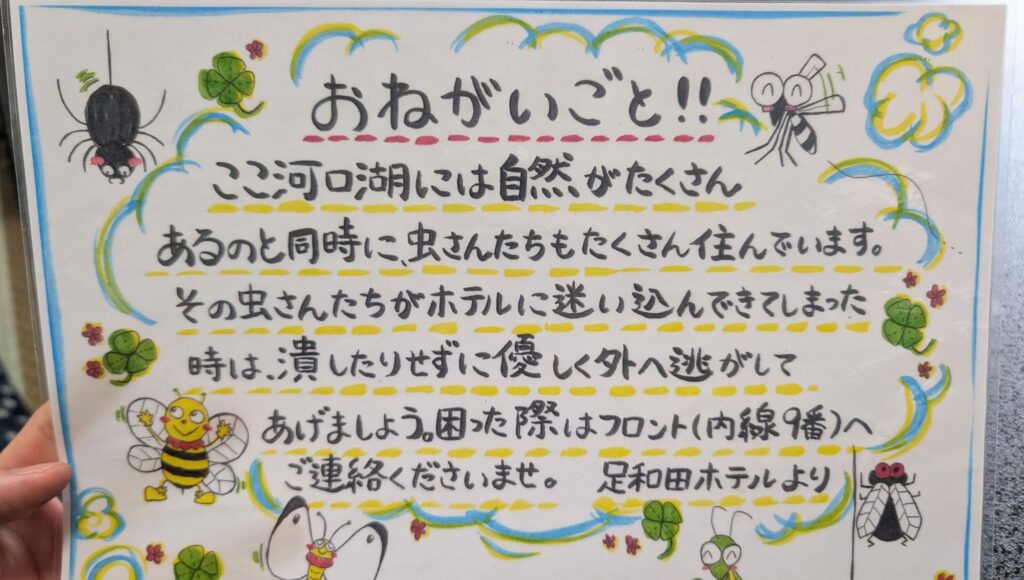 おねがいごと!!
ここ河口湖には自然がたくさん
あるのと同時に、虫さんたちもたくさん住んでいます。
その虫さんたちがホテルに迷い込んできてしまった
時は、潰したりせずに優しく外へ逃がして
あげましょう。困った際はフロント(内線9番)へ
ご連絡くださいませ。 足和田ホテルより